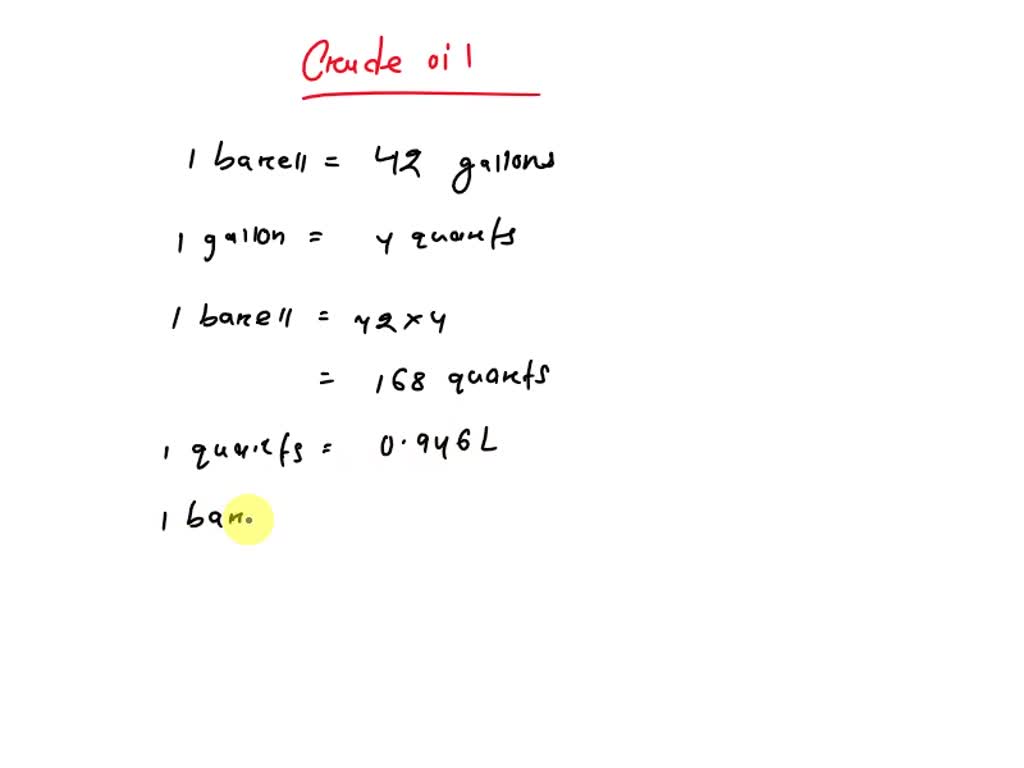 Crude oil
1 barell = 42 gallons
1 gallon = 4 quarts
1 barell = 42 × 4
= 168 quarts
1 quarts = 0.946 L
1 bar